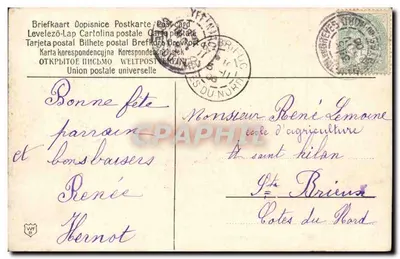 Briefkaart Dopisnice Postkarte Post-card
Levelező-Lap Cartolina postale Carte postale
Tarjeta postal Bilhete postal Brefkort
Karta korespondencyjna Korespondenční
ОТКРЫТОЕ ПИСЬМО WELTPOSTVEREIN
Union postale universelle
Bonne fête
parrain
et bons baisers
Renée
Hernot
Monsieur René Lemoine
école d'agriculture
à saint hilan
Ste Brieux
Cotes du Nord
CPAPHIL